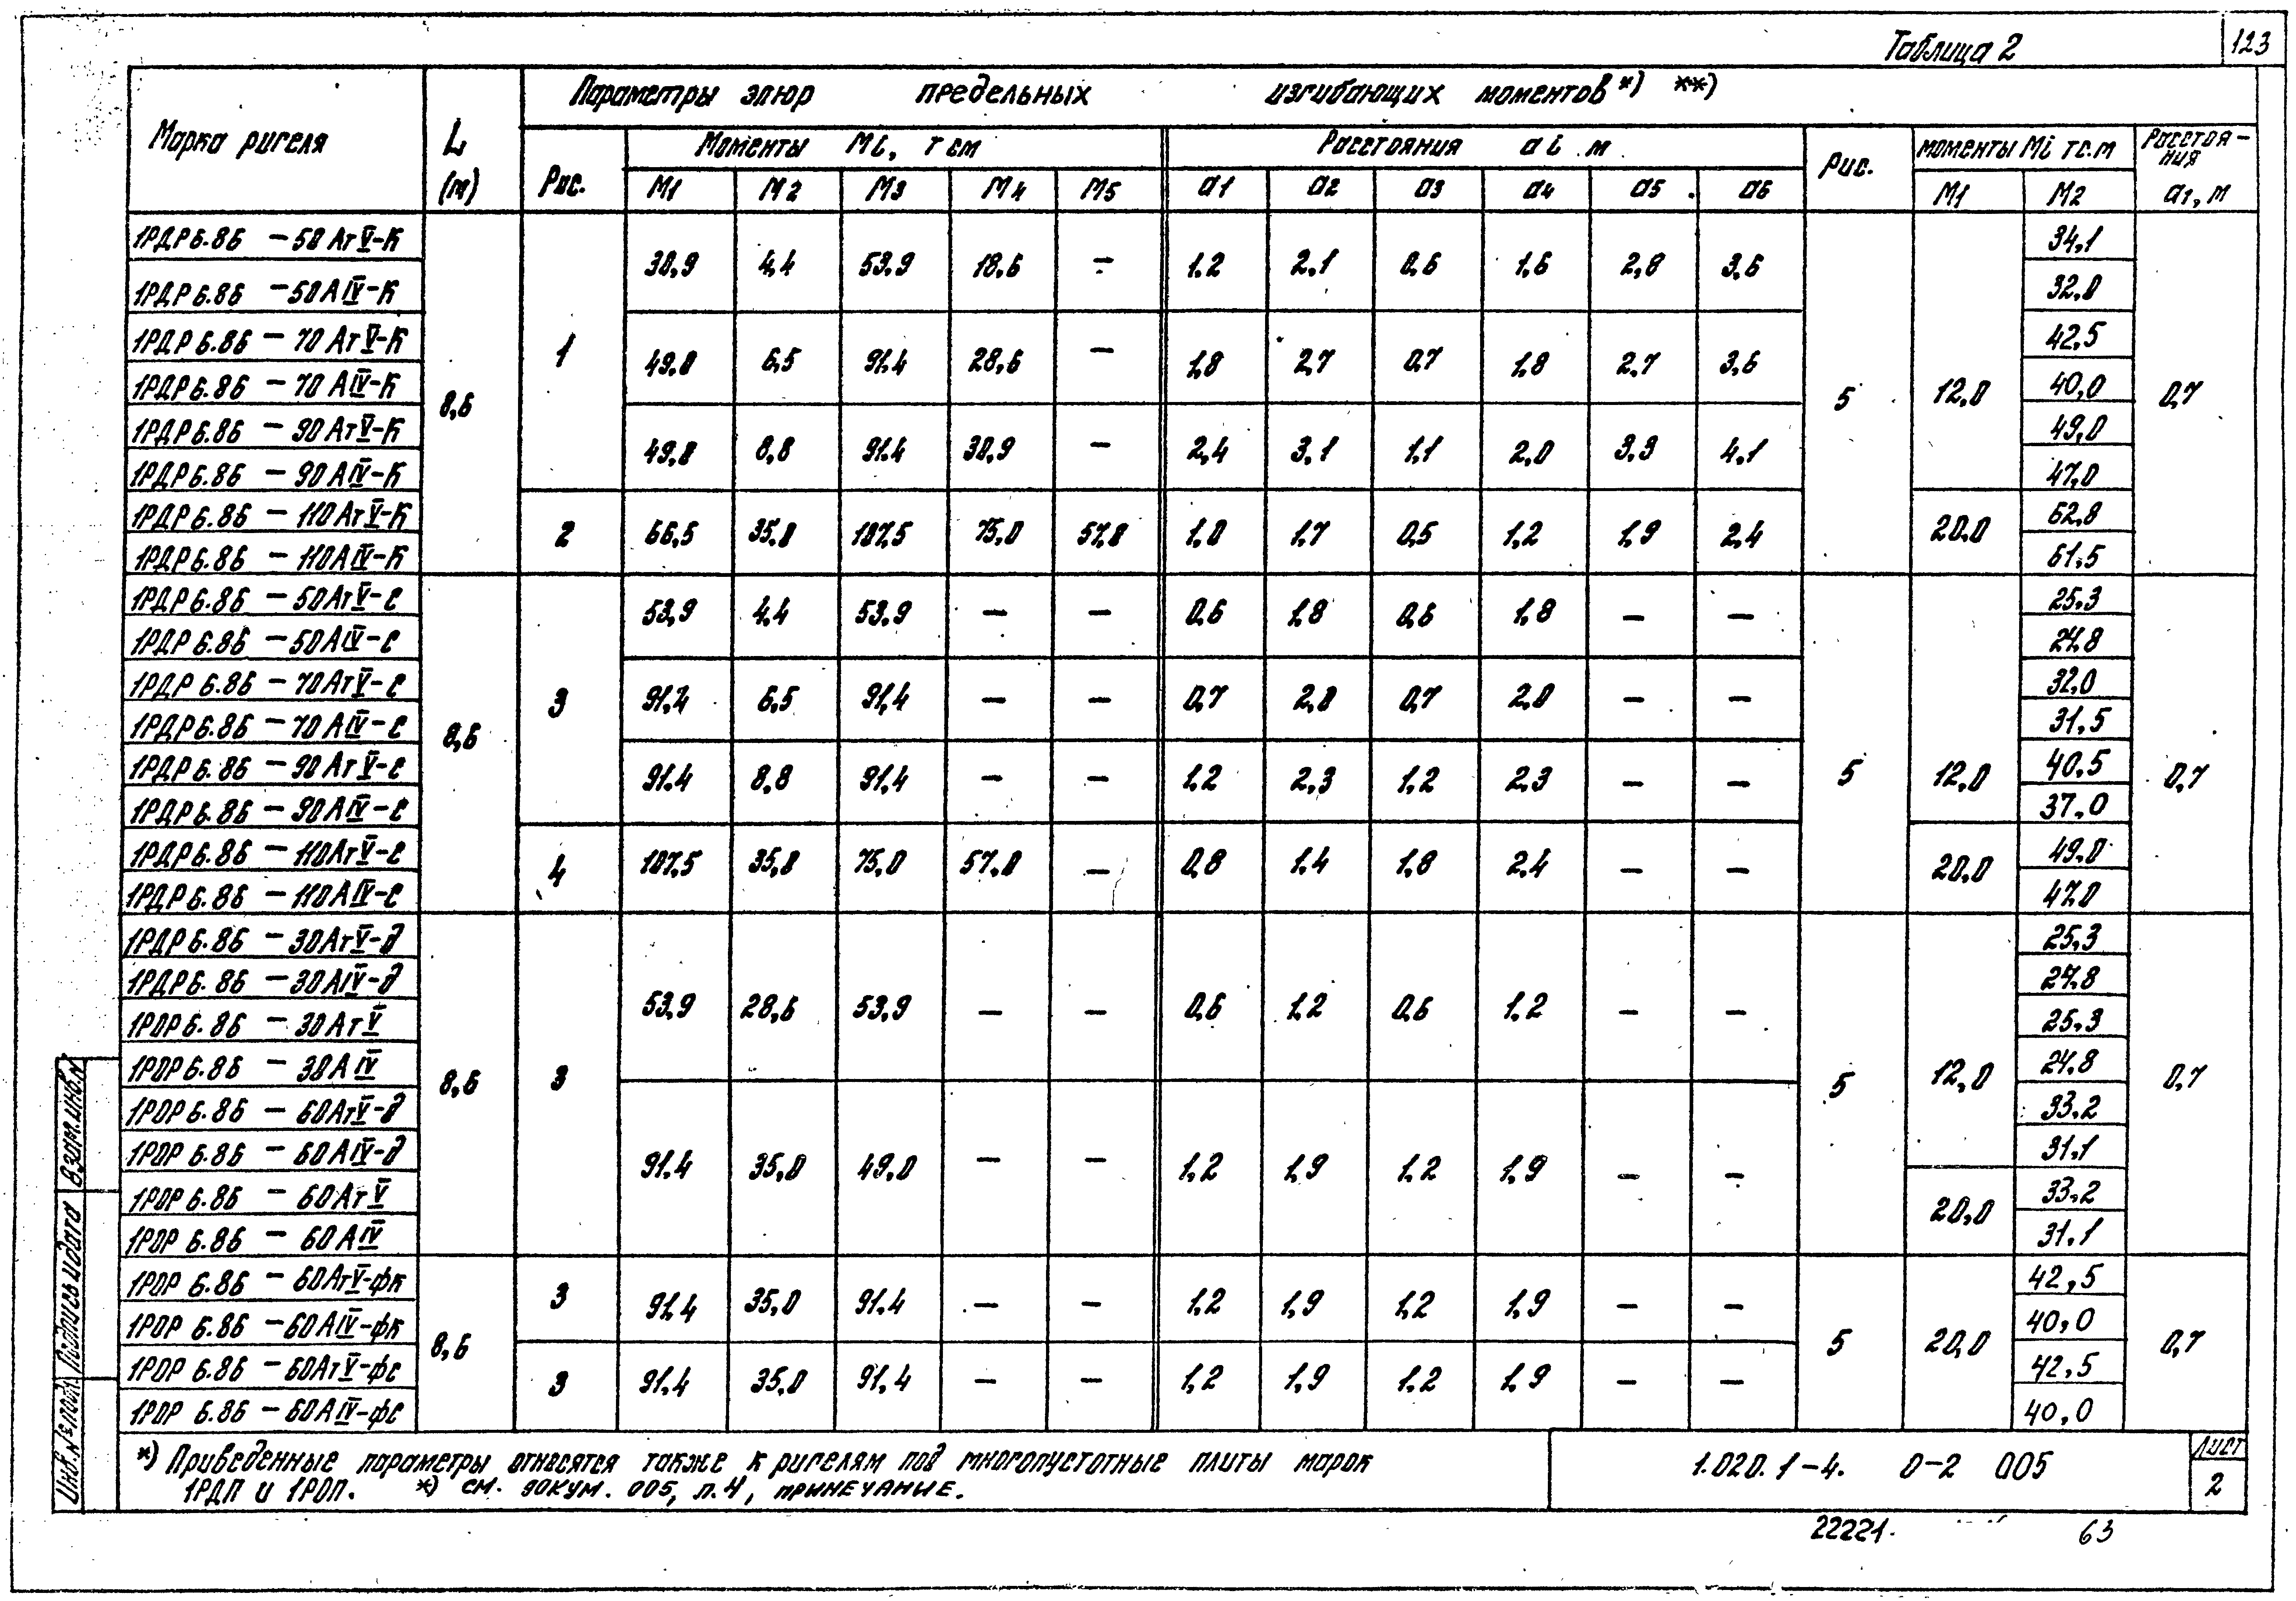 Таблица 2
123
Марка ригеля
L (м)
Параметры эпюр предельных изгибающих моментов *) **)
Рис.
Моменты Mi, тсм
Расстояния ai м
Рис.
моменты Mi тс.м
Расстоя-
ния
a1, м
M1 M2 M3 M4 M5 a1 a2 a3 a4 a5 a6 M1 M2
1РДР6.86 - 50АтV-К 8,6 1 30,9 4,4 53,9 18,6 - 1,2 2,1 0,6 1,6 2,8 3,6 5 12,0 34,1 0,7
1РДР6.86 - 50АIV-К 32,0
1РДР6.86 - 70АтV-К 49,0 6,5 91,4 28,6 - 1,8 2,7 0,7 1,8 2,7 3,6 42,5
1РДР6.86 - 70АIV-К 40,0
1РДР6.86 - 90АтV-К 49,0 8,8 91,4 30,9 - 2,4 3,1 1,1 2,0 3,3 4,1 49,0
1РДР6.86 - 90АIV-К 47,0
1РДР6.86 - 110АтV-К 2 66,5 35,0 107,5 75,0 57,0 1,0 1,7 0,5 1,2 1,9 2,4 20,0 62,8
1РДР6.86 - 110АIV-К 61,5
1РДР6.86 - 50АтV-С 8,6 3 53,9 4,4 53,9 - - 0,6 1,8 0,6 1,8 - - 5 12,0 25,3 0,7
1РДР6.86 - 50АIV-С 24,8
1РДР6.86 - 70АтV-С 91,4 6,5 91,4 - - 0,7 2,0 0,7 2,0 - - 32,0
1РДР6.86 - 70АIV-С 31,5
1РДР6.86 - 90АтV-С 91,4 8,8 91,4 - - 1,2 2,3 1,2 2,3 - - 40,5
1РДР6.86 - 90АIV-С 37,0
1РДР6.86 - 110АтV-С 4 107,5 35,0 75,0 57,0 - 0,8 1,4 1,8 2,4 - - 20,0 49,0
1РДР6.86 - 110АIV-С 47,0
1РДР6.86 - 30АтV-д 8,6 3 53,9 28,6 53,9 - - 0,6 1,2 0,6 1,2 - - 5 12,0 25,3 0,7
1РДР6.86 - 30АIV-д 24,8
1РОР6.86 - 30АтV 25,3
1РОР6.86 - 30АIV 24,8
1РОР6.86 - 60АтV-д 91,4 35,0 49,0 - - 1,2 1,9 1,2 1,9 - - 33,2
1РОР6.86 - 60АIV-д 31,1
1РОР6.86 - 60АтV 20,0 33,2
1РОР6.86 - 60АIV 31,1
1РОР6.86 - 60АтV-фк 8,6 3 91,4 35,0 91,4 - - 1,2 1,9 1,2 1,9 - - 5 20,0 42,5 0,7
1РОР6.86 - 60АIV-фк 40,0
1РОР6.86 - 60АтV-фс 3 91,4 35,0 91,4 - - 1,2 1,9 1,2 1,9 - - 42,5
1РОР6.86 - 60АIV-фс 40,0
*) Приведенные параметры относятся также к ригелям под многопустотные плиты марок
1РДП и 1РОП. *) см. докум. 005, п.4, примечание.
1.020.1-4. 0-2 005
Лист
2
22221. 63
Инв.№ подл. Подпись и дата Взам.инв.№